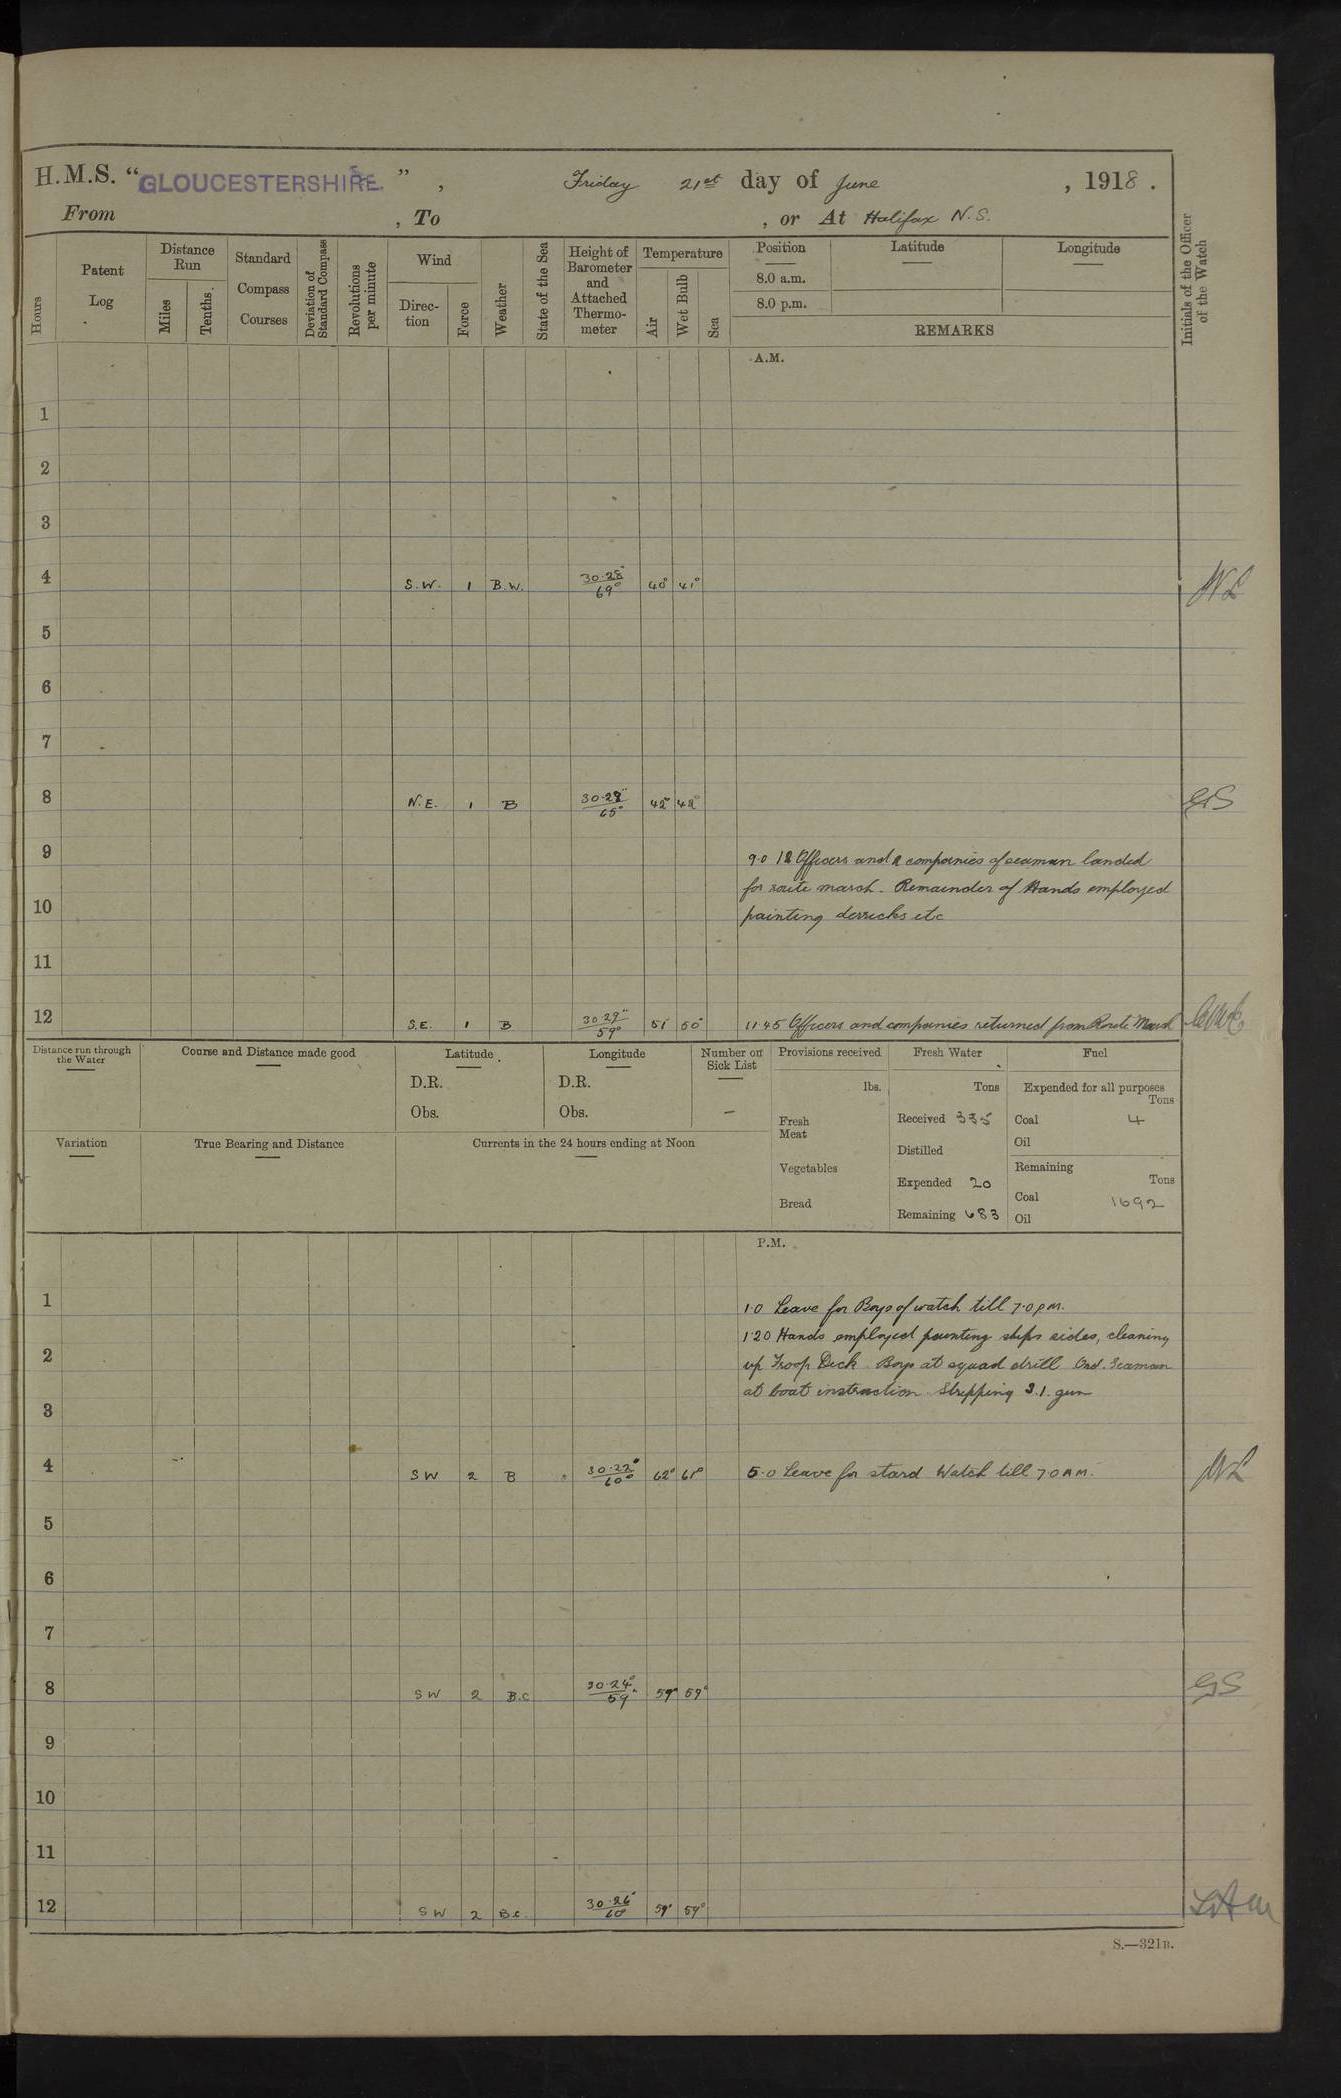 H.M.S. “GLOUCESTERSHIRE” , Friday 21st day of June , 1918 .
From , To , or At Halifax N.S.
Hours Patent Log Distance Run Miles Tenths. Standard Compass Courses Deviation of Standard Compass Revolutions per minute Wind Direc-tion Force Weather State of the Sea Height of Barometer and Attached Thermo-meter Temperature Air Wet Bulb Sea Position Latitude Longitude Initials of the Officer of the Watch
8.0 a.m.
8.0 p.m.
REMARKS
A.M.
1
2
3
4 S.W. 1 B.W. 30.28 69° 40° 41°
5
6
7
8 N.E. 1 B 30.28 65° 42° 42° GS
9 9.0 12 Officers and 2 companies of seamen landed
for route march. Remainder of Hands employed
10
painting derricks etc
11
12 S.E. 1 B 30.29 59° 51° 50° 11.45 Officers and companies returned from Route March
Distance run through the Water Course and Distance made good Latitude Longitude Number on Sick List Provisions received Fresh Water Fuel
D.R. D.R. lbs. Tons Expended for all purposes Tons
Obs. Obs. — Fresh Meat Received 335 Coal 4
Variation True Bearing and Distance Currents in the 24 hours ending at Noon Distilled Oil
Vegetables Remaining Tons
Expended 20
Bread Coal 1692
Remaining 683 Oil
P.M.
1 1.0 Leave for Boys of watch till 7.0 p.m.
1.20 Hands employed painting ships sides, cleaning
2 up Troop Deck. Boys at squad drill Ord. Seaman
at boat instruction. Stripping 3.1. gun
3
4 SW 2 B 30.22 60° 62° 61° 5.0 Leave for stard Watch till 7.0 A.M.
5
6
7
8 SW 2 B.C 30.24 59° 59° 59° GS
9
10
11
12 SW 2 B.C. 30.26 60° 59° 59°
S.—321B.